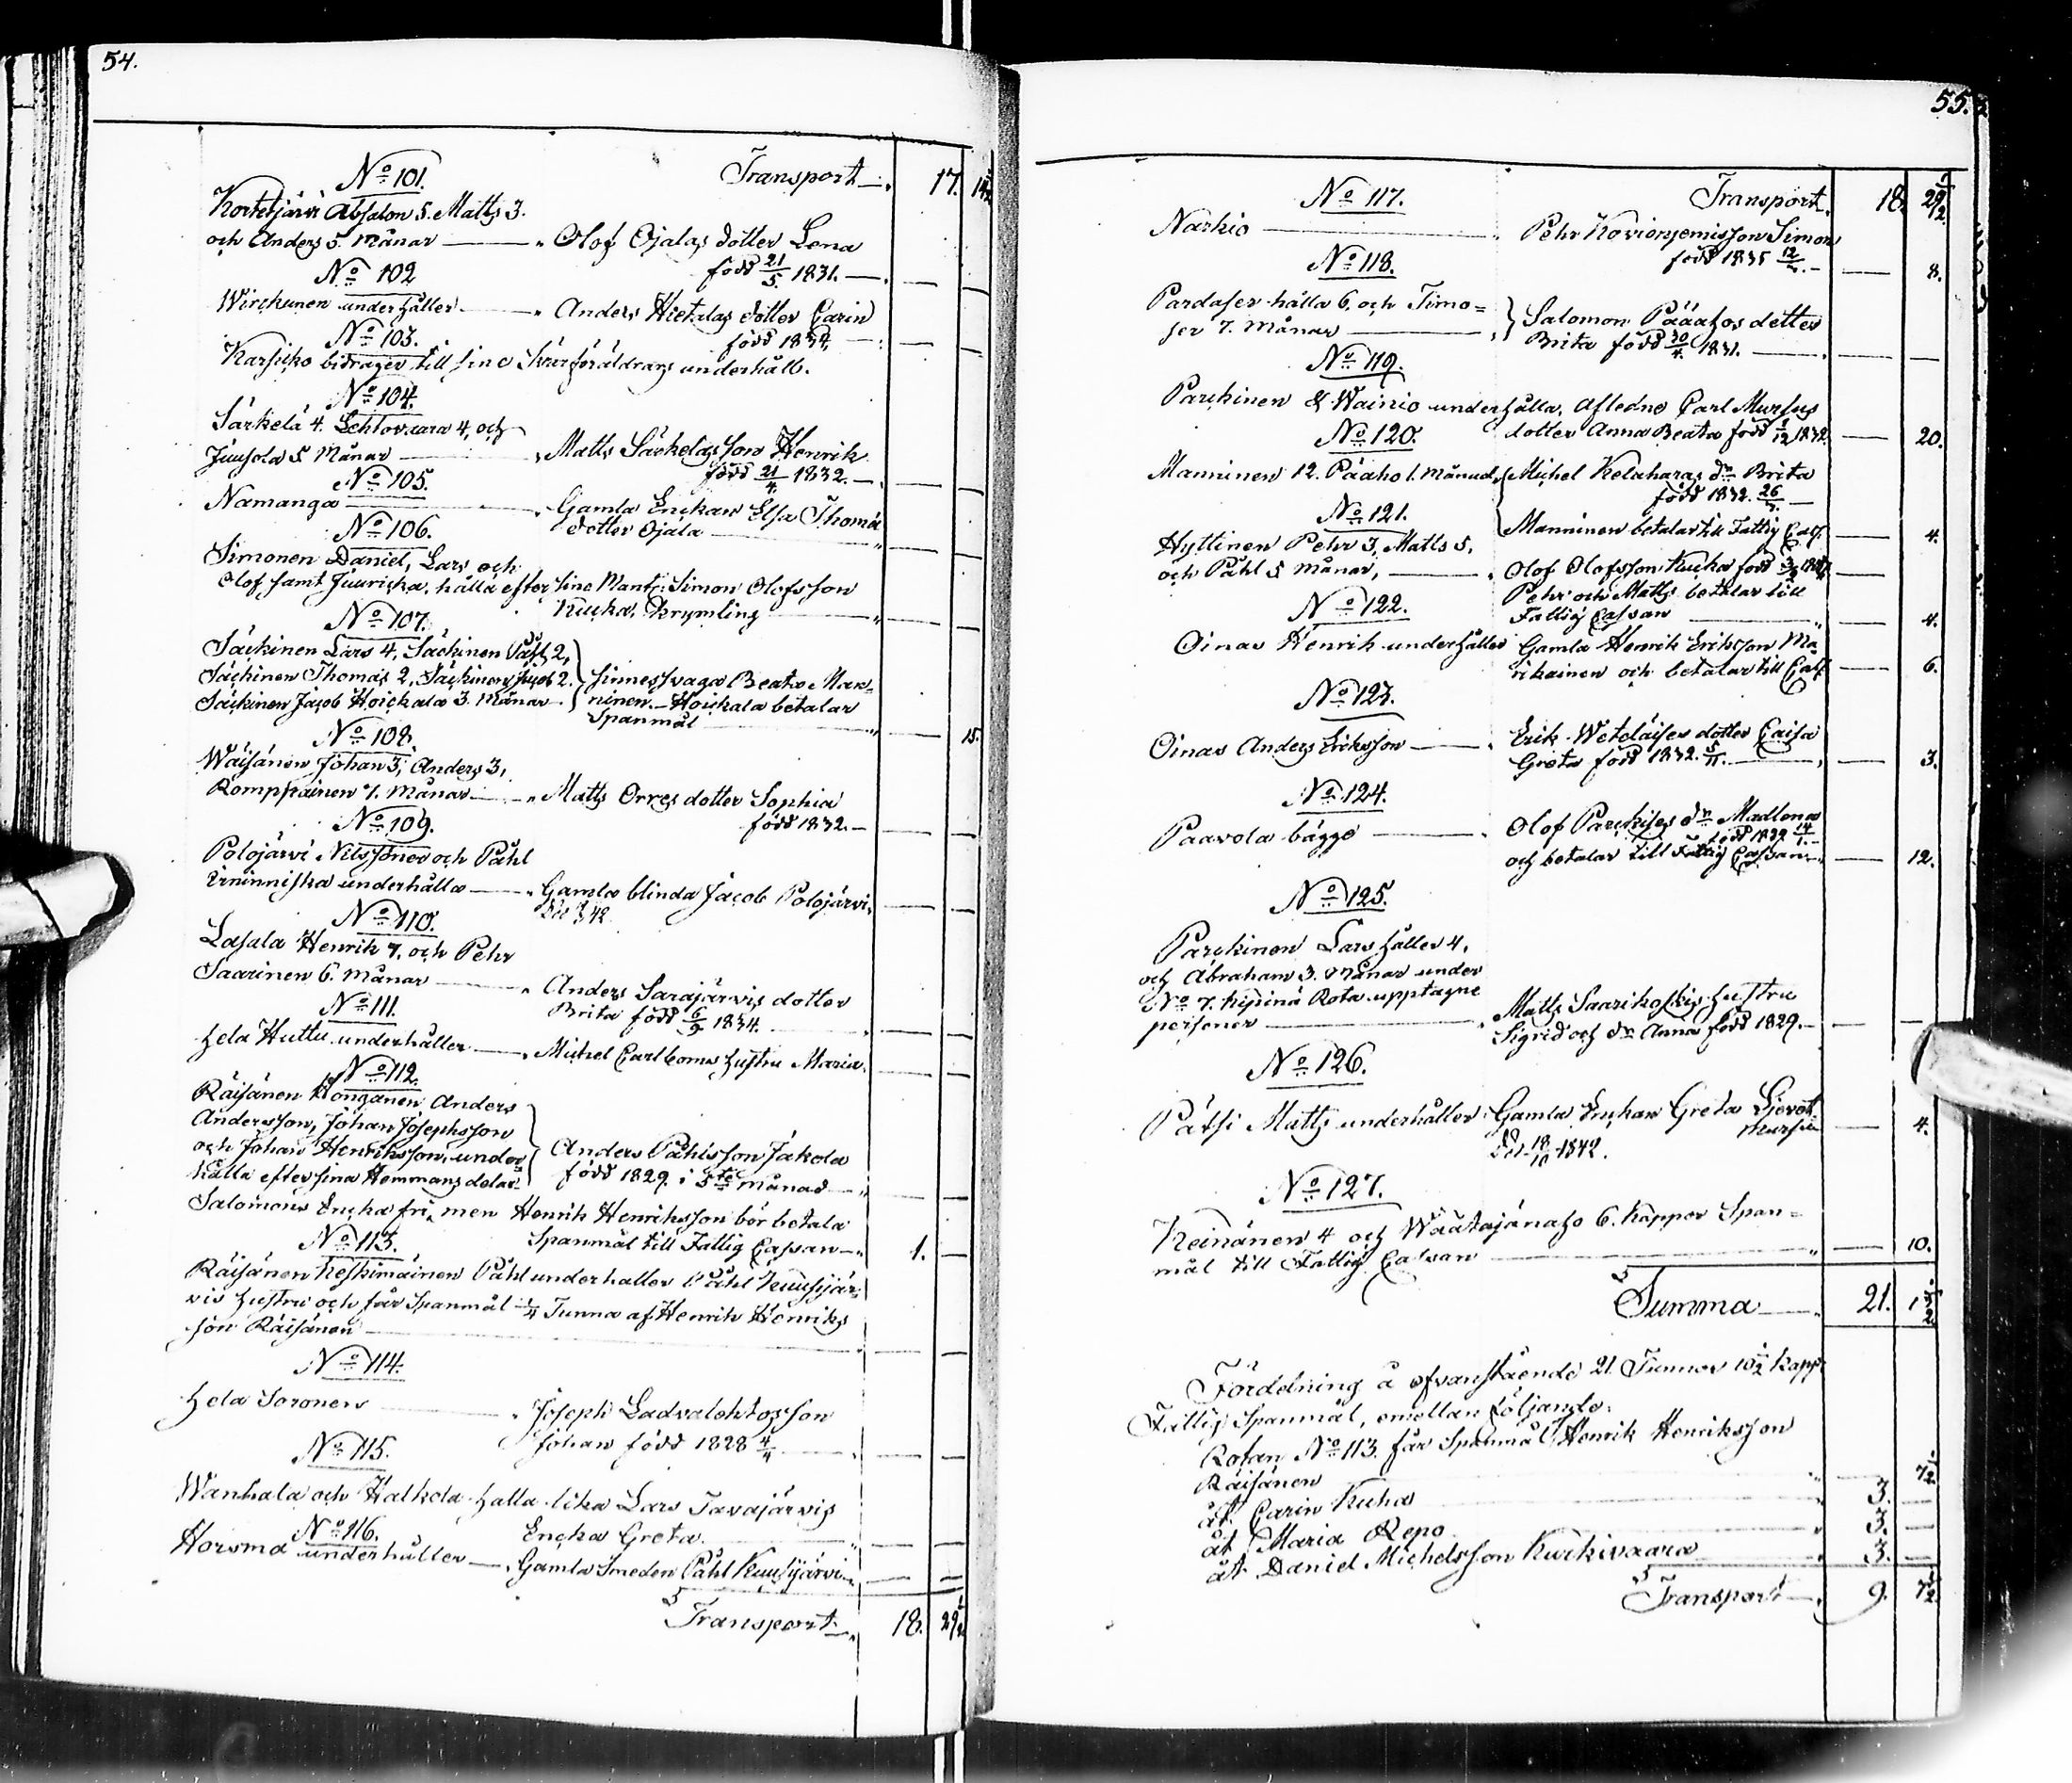 54.
No 101. Transport 17. 14½
Kortetjärvi Absalon 5. Matts 3.
och Anders 5. Månar Olof Ojalas dotter Lena
född 21/5 1831.
No 102
Wirckunen underhåller Anders Hietalas dotter Carin
född 1834,
No 103.
Karsicko bidrager till sine Svärföräldrars underhåll.
No 104.
Särkelä 4. Lehtovaara 4, och
Juusola 5 Månar Matts Särkeläs son Henrik
född 21/4 1832.
No 105.
Namanga Gamla Enckan Elsa Thomä
dotter Ojala
No 106.
Simonen Daniel, Lars och
Olof samt Juuricka, hålla efter sine Mantz. Simon Olofsson
Kiucka, Krympling
No 107.
Säckinen Lars 4, Säckinen Påhl 2,
Säckinen Thomas 2, Säckinen Jacob 2. Sinnessvaga Beata Man-
Säckinen Jacob Hoickala 3. Månar ninen. Hoickala betalar
Spanmål 15.
No 108.
Wäisänen Johan 3, Anders 3,
Romppainen 7. Månar Matts Orres dotter Sophia
född 1832.
No 109.
Polojärvi Nilssöner och Påhl
Erninniska underhålla Gamla blinda Jacob Polojärvi,
No 110.
Lasala Henrik 7. och Pehr
Saarinen 6. Månar Anders Sarajärvis dotter
Brita född 6/9 1834.
No 111.
hela Huttu underhåller Michel Carlboms hustru Maria.
No 112.
Räisänen Honganen Anders
Andersson, Johan Josephsson
och Johan Henriksson, under Anders Påhlsson Jakola
hålla efter sina Hemmans delar född 1829. i 3te månad
Salomons Encka fri, men Henrik Henriksson bör betala
No 113. Spanmål till Fattig Cassan 1.
Räisänen Keskimäinen Påhl underhåller Påhl Kuusijär-
vis hustru och får Spanmål ¼ Tunna af Henrik Henriks
son Räisänen
No 114.
hela Soronen Joseph Ladvalehtos son
Johan född 1828 4/4
No 115.
Wanhala och Halkola hålla lika Lars Tavajärvis
No 116. Encka Greta.
Horsma underhåller Gamla Smeden Påhl Kuusijärvi
Transport 18. 29½
55.
No 117. Transport 18. 29½
Narkio Pehr Kovionjemis son Simon
född 1835 8.
No 118.
Pardaser hålla 6. och Timo=
ser 7. Månar Salomon Pääahos dotter
Brita född 30/4 1831.
No 119.
Parckinen & Wainio underhålla, afledne Carl Mursus
No 120. dotter Anna Beata född 1/12 1832. 20.
Manninen 12. Pääho 1. Månad, Michel Kelaharas dr Brita
född 1832.
No 121. Manninen betalar till Fattig Cass. 4.
Hyttinen Pehr 3, Matts 5,
och Påhl 5 Månar, Olof Olofsson Kucka född
No 122. Pehr och Matts betalar till
Fattig Cassan 4.
Oinas Henrik underhåller Gamla Henrik Eriksson Ma-
rikainen och betalar till Cass. 6.
No 123.
Oinas Anders Eriksson Erik Weteläises dotter Caisa
Greta född 1832. 5/11. 3.
No 124.
Paavola bägge Olof Parckises dr Madlena
född 1829
och betalar till Fattig Cassan 12.
No 125.
Parckinen Lars håller 4,
och Abraham 3. Månar under
No 7. Kipinä Rota upptagne
personer Matts Saarikoskis hustru
Sigrid och dr Anna född 1829.
No 126.
Pätsi Matts underhåller Gamla Enckan Greta
Mursu 4.
Död 18/10 1842.
No 127.
Keinänen 4 och Wäätajänaho 6. Kappor Span=
mål till Fattig Cassan 10.
Summa 21. 1½
Fördelning å ofvanstående 21. Tunnor 10½ Kapp.
Fattig Spanmål, emellan följande.
Rotan No 113. får Spanmål Henrik Henriksson
Räisänen 7½
åt Carin Kuha 3.
åt Maria Repo 3.
åt Daniel Michelsson Kurkivaara 3.
Transport 9. 7½